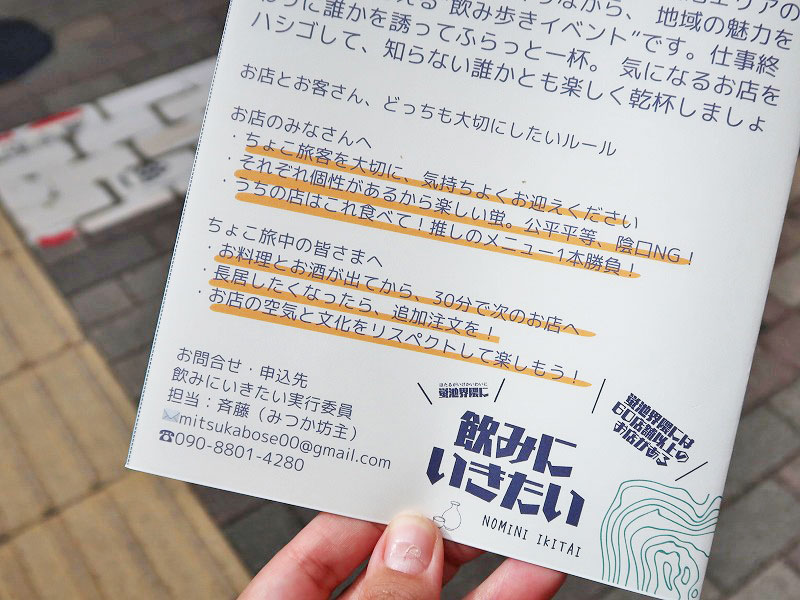 飲み歩きイベント”です。仕事終
わりに誰かを誘ってふらっと一杯。気になるお店を
ハシゴして、知らない誰かとも楽しく乾杯しましょ
お店とお客さん、どっちも大切にしたいルール
お店のみなさんへ
・ちょこ旅客を大切に、気持ちよくお迎えください
・それぞれ個性があるから楽しい蛍。公平平等、陰口NG！
・うちの店はこれ食べて！推しのメニュー1本勝負！
ちょこ旅中の皆さまへ
・お料理とお酒が出てから、30分で次のお店へ
・長居したくなったら、追加注文を！
・お店の空気と文化をリスペクトして楽しもう！
お問合せ・申込先
飲みにいきたい実行委員
担当：斉藤（みつか坊主）
✉mitsukabose00@gmail.com
☎090-8801-4280
ほたるがいけかいわいに
蛍池界隈に
飲みに
いきたい
NOMINI IKITAI
蛍池界隈には
60店舗以上の
お店がある